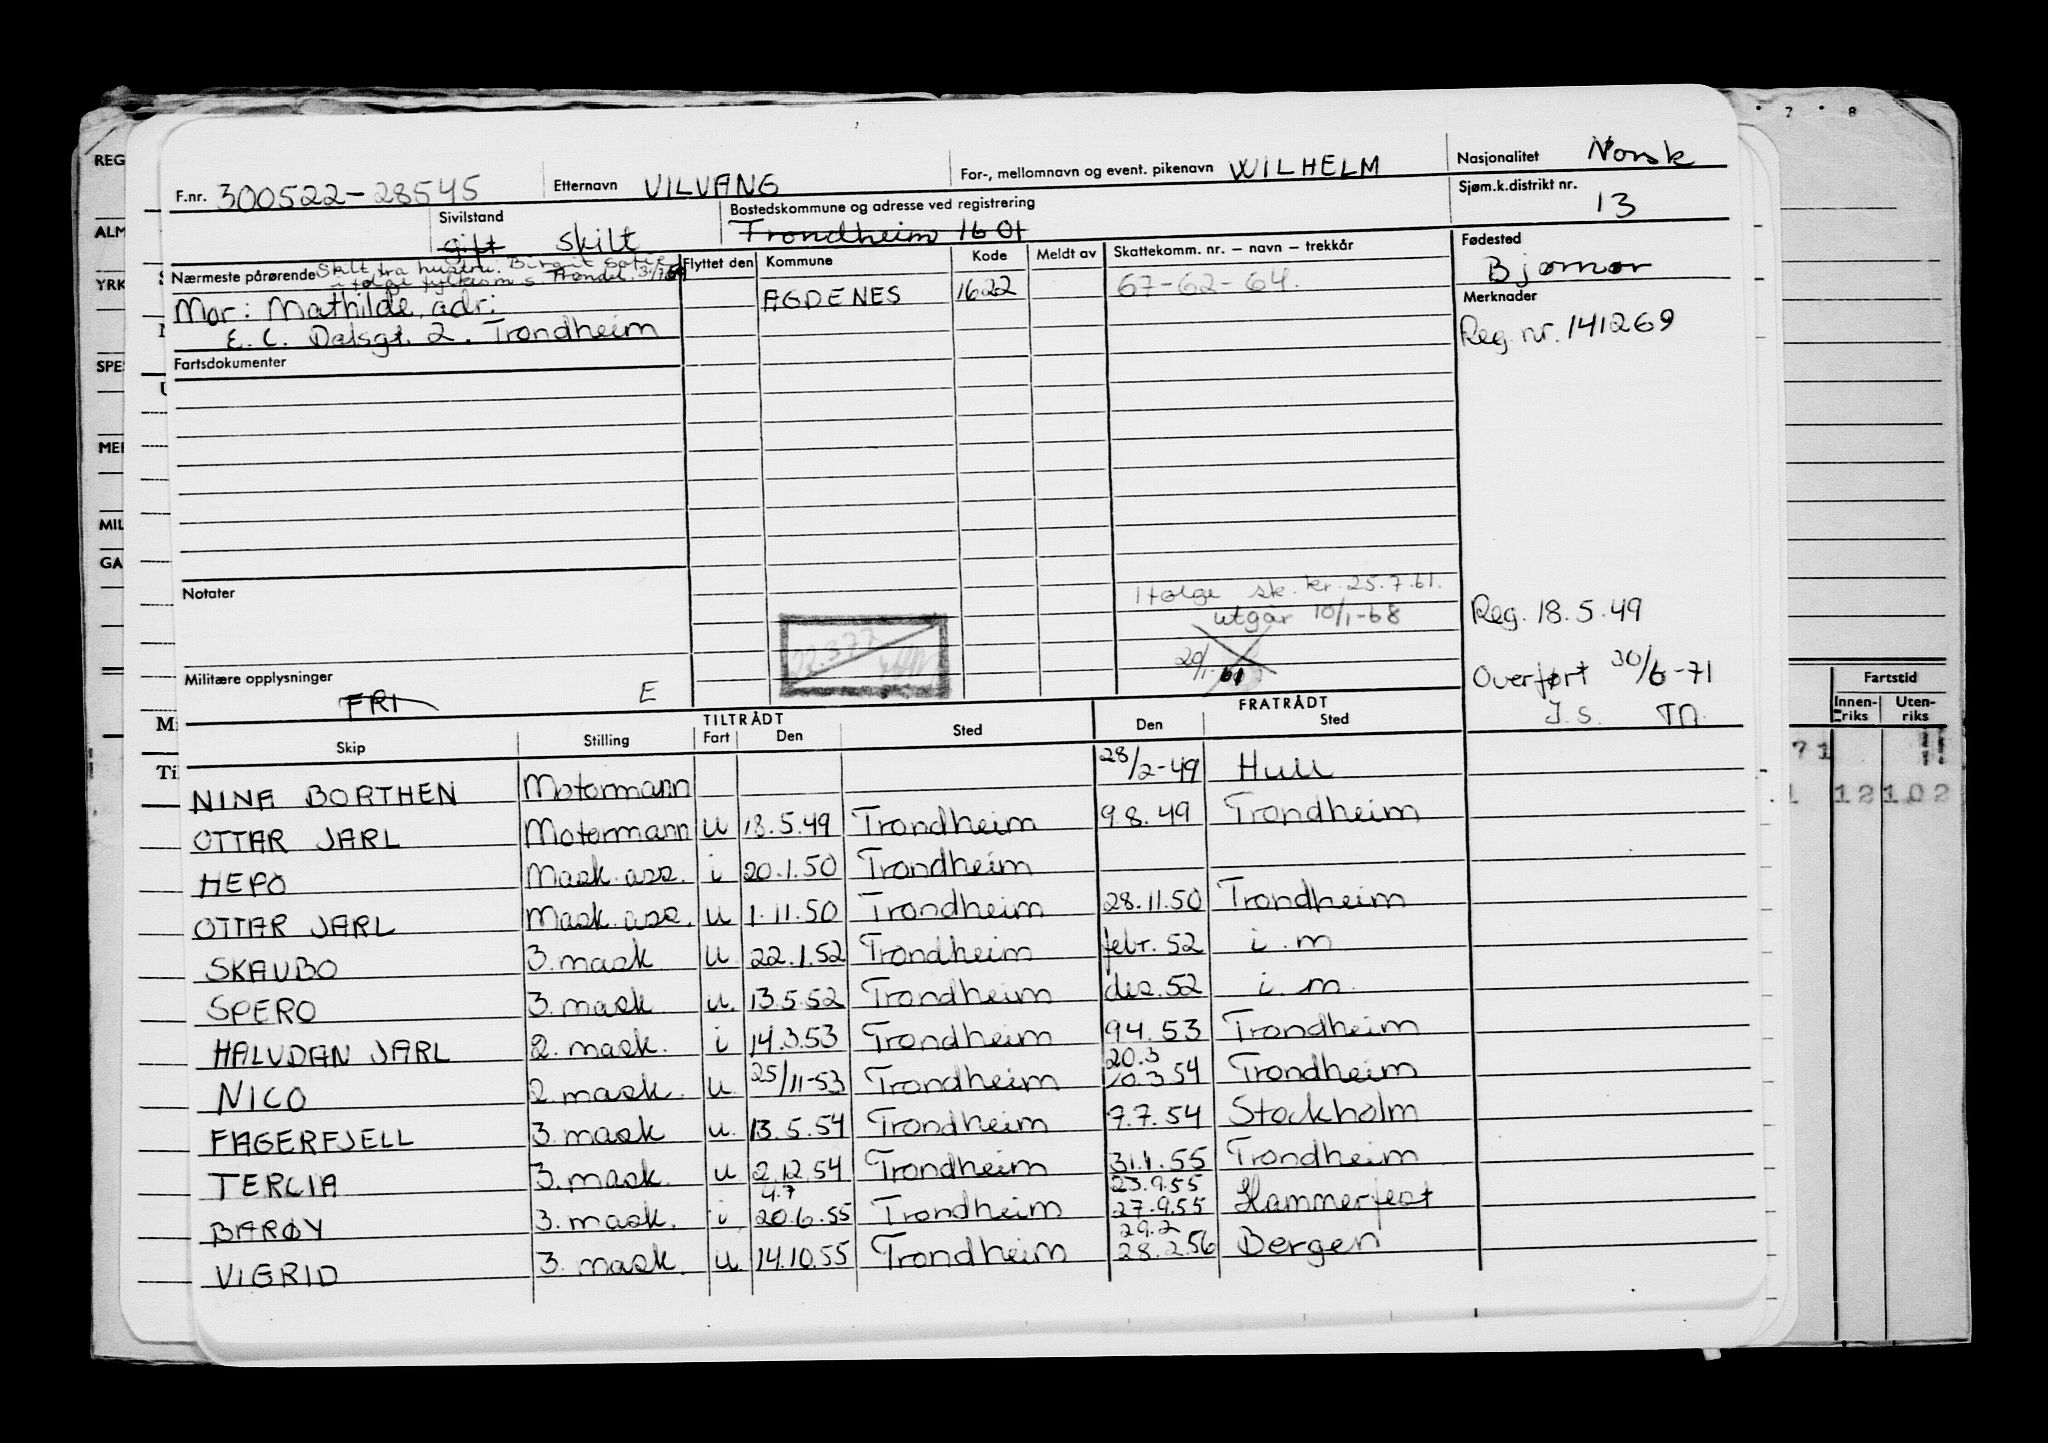 F.nr. 300522-28545 Etternavn VILVANG For-, mellomnavn og event. pikenavn WILHELM Nasjonalitet Norsk
Sivilstand gift skilt Bostedskommune og adresse ved registrering Trondheim 1601 Sjøm.k.distrikt nr. 13
Nærmeste pårørende Skilt fra hustru. Birgit Sofie
i følge fylkesm s. Trøndel. 31/7.59
Mor: Mathilde, adr:
E. C. Dalsgt. 2. Trondheim
Flyttet den Kommune Kode Meldt av Skattekomm. nr. – navn – trekkår
AGDENES 1622 67-62-64.
Fødested
Bjørnør
Merknader
Reg. nr. 141269
Fartsdokumenter
Notater
Ifølge sk. kr. 25.7.61.
utgår 10/1-68
20/1.61
Reg. 18.5.49
Overført 30/6-71
J.S. TM.
Militære opplysninger
FRI E
TILTRÅDT FRATRÅDT
Skip Stilling Fart Den Sted Den Sted
NINA BORTHEN Motormann 28/2-49 Hull
OTTAR JARL Motormann u 18.5.49 Trondheim 9.8.49 Trondheim
HEPO Mask.ass. i 20.1.50 Trondheim
OTTAR JARL Mask.ass. u 1.11.50 Trondheim 28.11.50 Trondheim
SKAUBO 3. mask u. 22.1.52 Trondheim febr. 52 i. m
SPERO 3. mask u. 13.5.52 Trondheim des. 52 i. m.
HALVDAN JARL 2. mask. i 14.3.53 Trondheim 9.4.53 Trondheim
NICO 2. mask. u. 25/11-53 Trondheim 20.3 10.3 54 Trondheim
FAGERFJELL 3. mask u. 13.5.54 Trondheim 7.7.54 Stockholm
TERCIA 3. mask. u 2.12.54 Trondheim 31.1.55 Trondheim
BARØY 3. mask. i 4.7 20.6.55 Trondheim 23.9.55 27.9.55 Hammerfest
VIGRID 3. mask. u. 14.10.55 Trondheim 29.2 28.2.56 Bergen
REG
ALM
YRK
SPES
MER
MIL
GA
7 8
Fartstid
Innenriks Utenriks
71 11
12 102